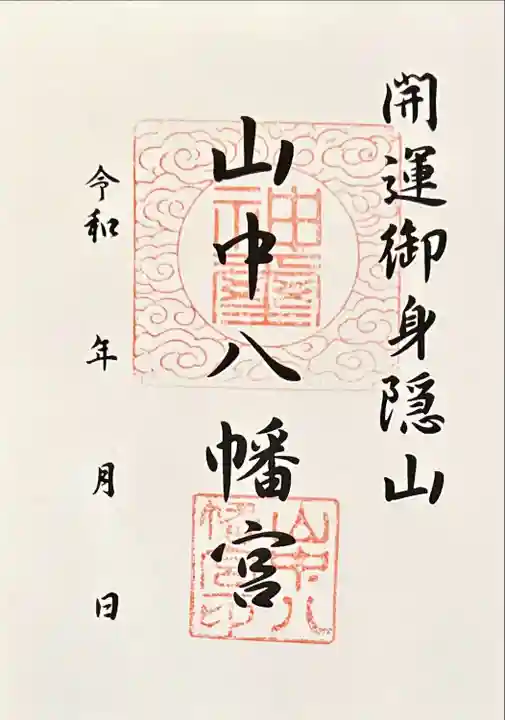 開運御身隠山
山中八幡宮
令和 年 月 日
山中八
幡宮印